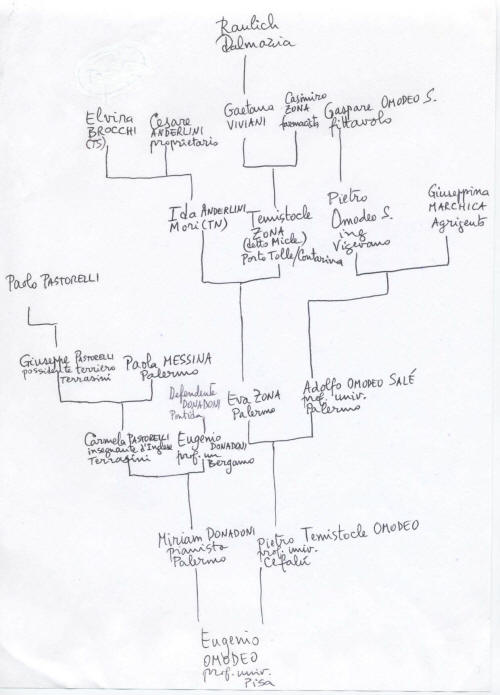 Raulich
Dalmazia
Elvira
BROCCHI
(TS)
Cesare
ANDERLINI
proprietario
Gaetana
VIVIANI
Casimiro
ZONA
farmacista
Gaspare OMODEO S.
fittavolo
Ida ANDERLINI
Mori (TN)
Temistocle
ZONA
(detto Micle)
Porto Tolle/Contarina
Pietro
Omodeo S.
ing
Vigevano
Giuseppina
MARCHICA
Agrigento
Paolo PASTORELLI
Giuseppe PASTORELLI
possidente terriero
Terrasini
Paola MESSINA
Palermo
Defendente
DONADONI
Pontida
Eva ZONA
Palermo
Adolfo OMODEO SALÉ
prof. univ.
Palermo
Carmela PASTORELLI
insegnante d'Inglese
Terrasini
Eugenio
DONADONI
prof. un.
Bergamo
Miriam DONADONI
pianista
Palermo
Pietro Temistocle OMODEO
prof. univ.
Cefalù
Eugenio
OMODEO
prof. univ.
Pisa